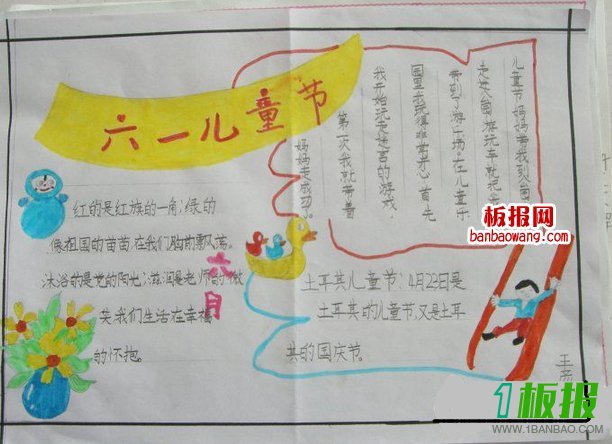 六一儿童节
红的是红族的一角,绿的
像祖国的苗苗,在我们胸前飘荡。
沐浴的是党的阳光;滋润是老师的微
笑我们生活在幸福
的怀抱。
六月
儿童节妈妈带我到
游玩车就把
带到了游乐场在儿童乐
园里我玩得非常开心首先
我开始玩走迷宫的游戏,
第一次我就带着
妈妈走成功了。
土耳其儿童节:4月23日是
土耳其的儿童节,又是土耳
其的国庆节。
板报网
banbaowang.com
1板报
WWW.1BANBAO.COM